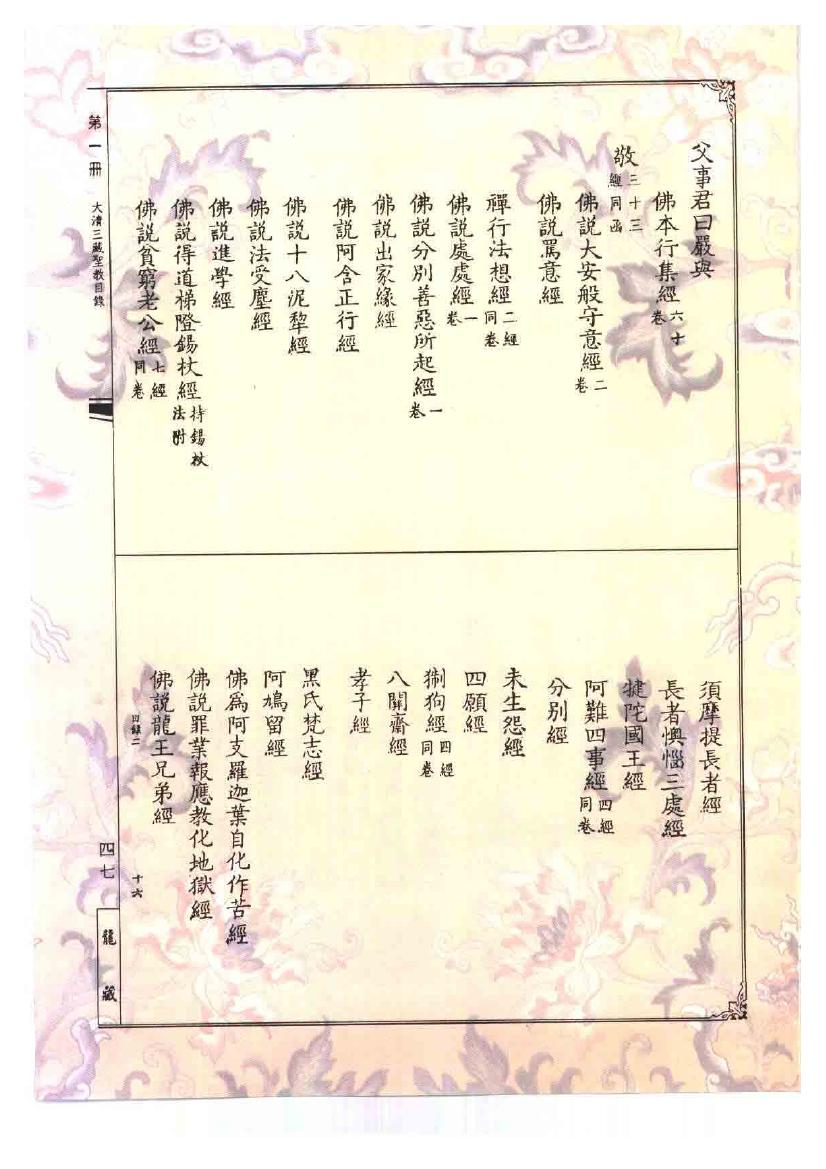 父事君曰嚴與
佛本行集經六十卷
敬三十三經同函
佛説大安般守意經二卷
佛説罵意經
禪行法想經二經同卷
佛説處處經一卷
佛説分別善惡所起經一卷
佛説出家緣經
佛説阿含正行經
佛説十八泥犂經
佛説法受塵經
佛説進學經
佛説得道梯隥錫杖經持錫杖法附
佛説貧窮老公經七經同卷
須摩提長者經
長者懊惱三處經
犍陀國王經
阿難四事經四經同卷
分別經
未生怨經
四願經
猘狗經四經同卷
八關齋經
孝子經
黑氏梵志經
阿鳩留經
佛爲阿支羅迦葉自化作苦經
佛説罪業報應教化地獄經
佛説龍王兄弟經
目録二
十六
第一冊
大清三藏聖教目錄
四七
龍藏